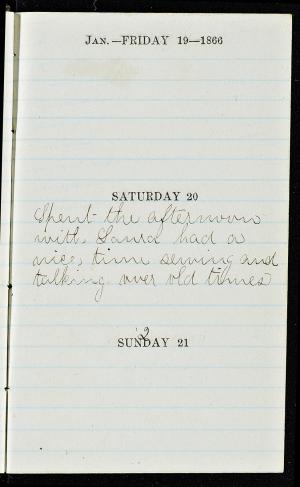 Jan.—FRIDAY 19—1866
SATURDAY 20
Spent the afternoon
with Laura had a
nice time sewing and
talking over old times
2
SUNDAY 21